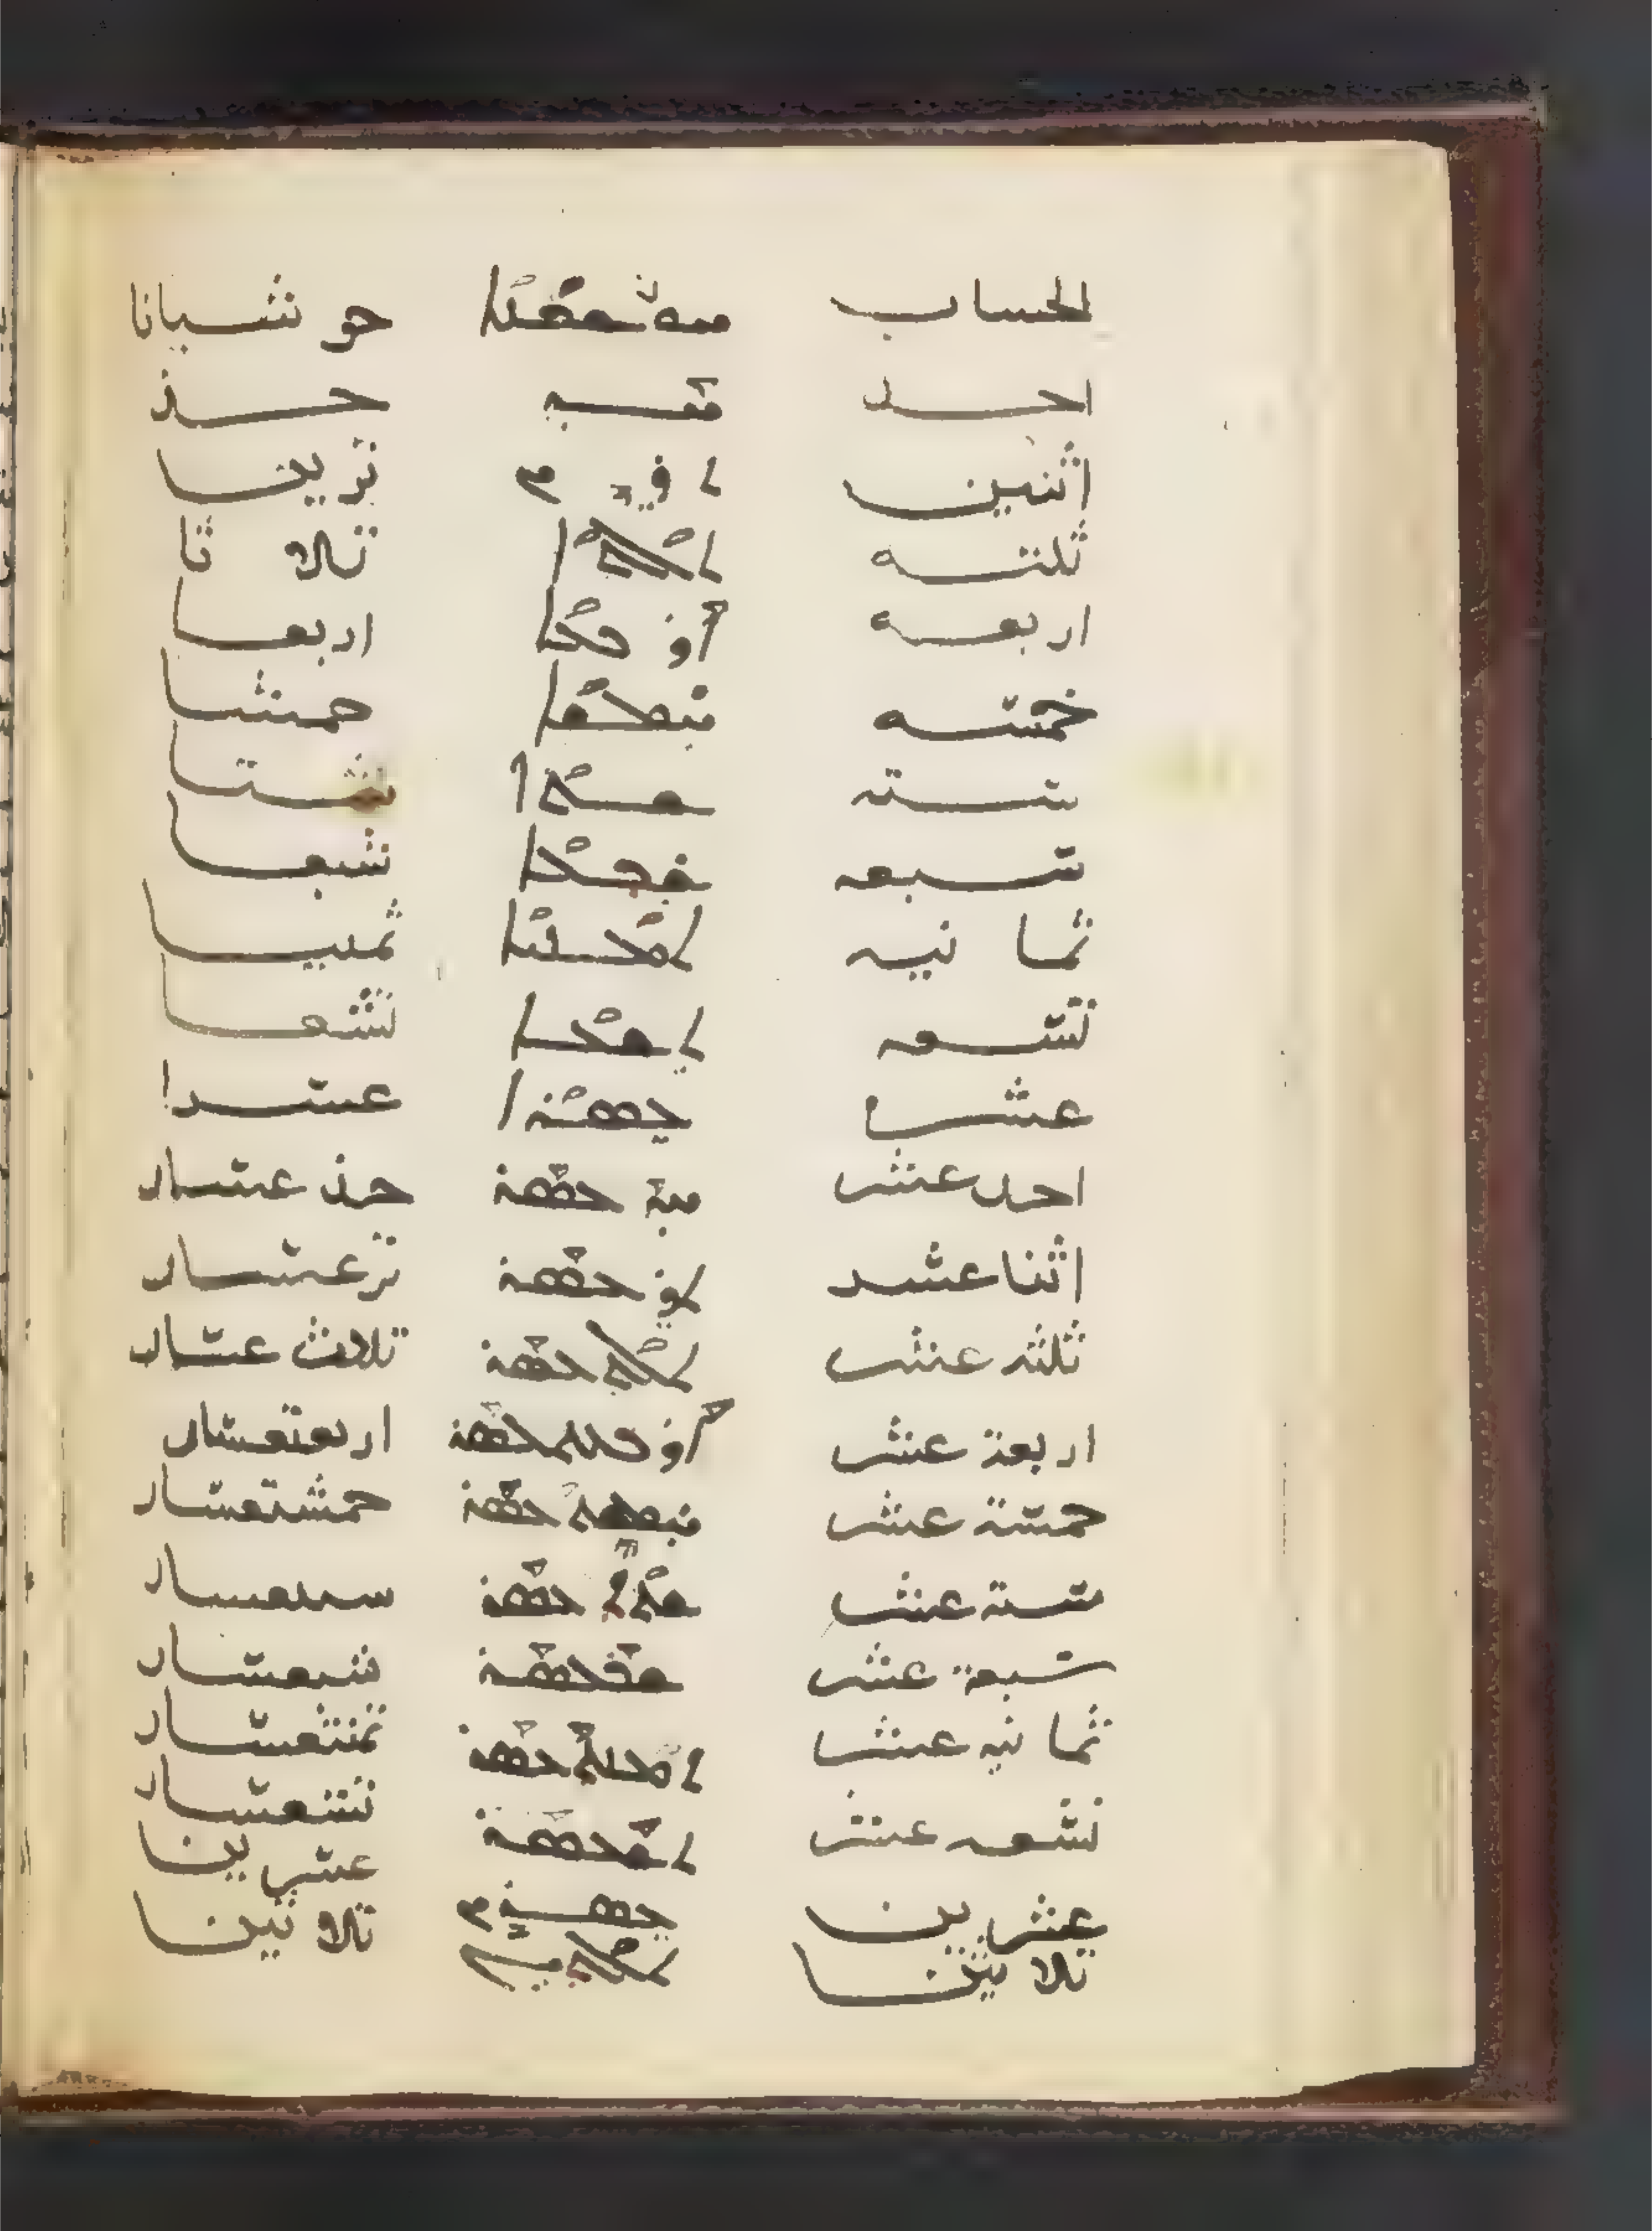 الحساب ܚܘܫܒܢܐ حو شبانا
احد ܚܕ حـــذ
اثنين ܬܪܝܢ ترين
ثلثه ܬܠܬܐ تلا ثا
اربعه ܐܪܒܥܐ اربعا
خمسه ܚܡܫܐ حمشا
سته ܫܬܐ شتا
سبعه ܫܒܥܐ شبعا
ثما نيه ܬܡܢܝܐ ثمنيا
تسعه ܬܫܥܐ تشعا
عشر ܥܣܪܐ عسرا
احد عشر ܚܕܥܣܪ حذ عسار
اثنا عشر ܬܪܥܣܪ ترعسار
ثلثه عشر ܬܠܬܥܣܪ تلاث عسار
اربعة عشر ܐܪܒܥܬܥܣܪ اربعتعسار
خمسة عشر ܚܡܫܬܥܣܪ حمشتعسار
ستة عشر ܫܬܬܥܣܪ
سبعة عشر ܫܒܥܣܪ شبعسار
ثما نيه عشر ܬܡܢܬܥܣܪ تمنتعسار
تسعه عشر ܬܫܥܣܪ تشعسار
عشرين ܥܣܪܝܢ عسرين
ثلا ثين ܬܠܬܝܢ تلا ثين